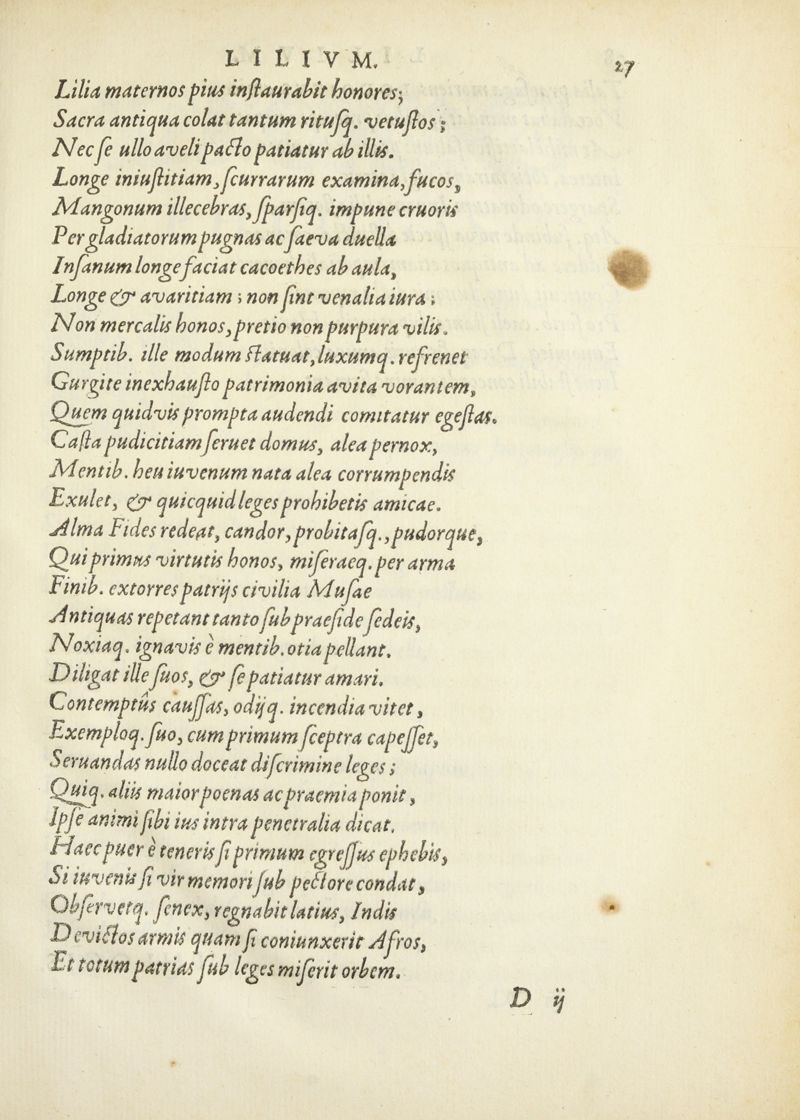 LILIVM.
27
Lilia maternos pius inſtaurabit honores;
Sacra antiqua colat tantum rituſq. vetuſtos;
Nec ſe ullo aveli pacto patiatur ab illis.
Longe iniuſtitiam, ſcurrarum examina, fucos,
Mangonum illecebras, ſparſiq. impune cruoris
Per gladiatorum pugnas ac ſaeva duella
Inſanum longe faciat cacoethes ab aula,
Longe & avaritiam; non ſint venalia iura;
Non mercalis honos, pretio non purpura vilis.
Sumptib. ille modum ſtatuat, luxumq. refrenet
Gurgite inexhauſto patrimonia avita vorantem,
Quem quidvis prompta audendi comitatur egeſtas.
Caſta pudicitiam ſeruet domus, alea pernox,
Mentib. heu iuvenum nata alea corrumpendis
Exulet, & quicquid leges prohibetis amicae.
Alma Fides redeat, candor, probitaſq., pudorque,
Qui primus virtutis honos, miſeraeq. per arma
Finib. extorres patrijs civilia Muſae
Antiquas repetant tanto ſub praeſide ſedeis,
Noxiaq. ignavis è mentib. otia pellant.
Diligat ille ſuos, & ſe patiatur amari.
Contemptûs cauſſas, odijq. incendia vitet,
Exemploq. ſuo, cum primum ſceptra capeſſet,
Seruandas nullo doceat diſcrimine leges;
Quiq. aliis maior poenas ac praemia ponit,
Ipſe animi ſibi ius intra penetralia dicat.
Haec puer è teneris ſi primum egreſſus ephebis,
Si iuvenis ſi vir memori ſub pectore condat,
Obſervetq. ſenex, regnabit latius, Indis
Devictos armis quam ſi coniunxerit Afros,
Et totum patrias ſub leges miſerit orbem.
D ij